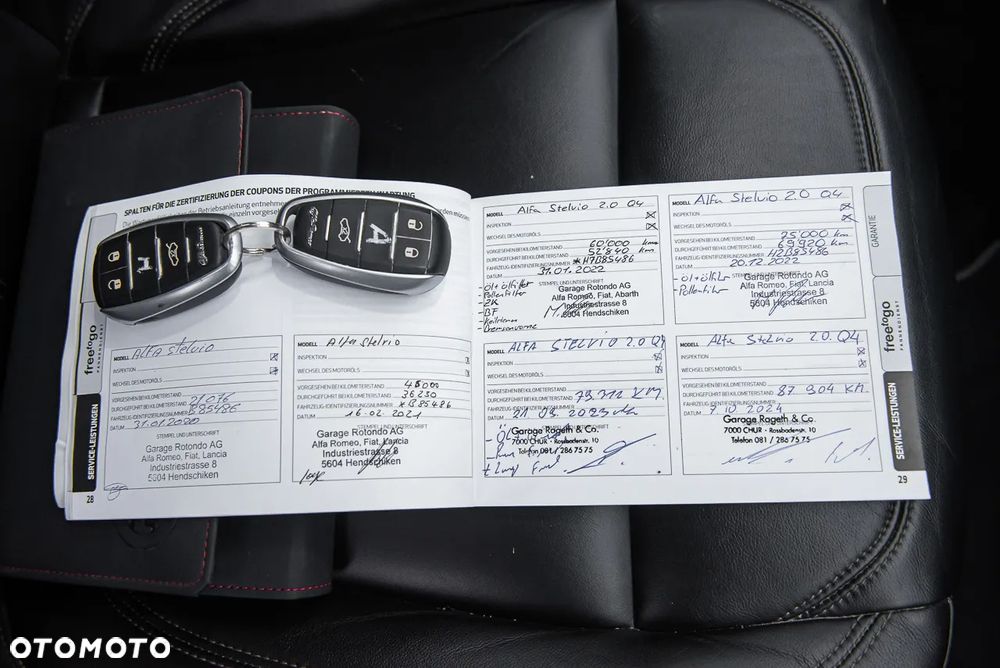 SPALTEN FÜR DIE ZERTIFIZIERUNG DER COUPONS DER PROGRAMMIERTEN WARTUNG
der Betriebsanleitung
freetogo
PANNENDIENST
SERVICE-LEISTUNGEN
28
MODELL Alfa Stelvio
INSPEKTION
WECHSEL DES MOTORÖLS
VORGESEHEN BEI KILOMETERSTAND
DURCHGEFÜHRT BEI KILOMETERSTAND 21076
FAHRZEUG-IDENTIFIZIERUNGSNUMMER B85486
DATUM 31.01.2020
STEMPEL UND UNTERSCHRIFT
Garage Rotondo AG
Alfa Romeo, Fiat, Lancia
Industriestrasse 8
5604 Hendschiken
MODELL Alfa Stelvio
INSPEKTION
WECHSEL DES MOTORÖLS
VORGESEHEN BEI KILOMETERSTAND 45000
DURCHGEFÜHRT BEI KILOMETERSTAND 36230
FAHRZEUG-IDENTIFIZIERUNGSNUMMER *B85486
DATUM 16.02.2021
STEMPEL UND UNTERSCHRIFT
Garage Rotondo AG
Alfa Romeo, Fiat, Lancia
Industriestrasse 8
5604 Hendschiken
MODELL Alfa Stelvio 2.0 Q4
INSPEKTION
WECHSEL DES MOTORÖLS
VORGESEHEN BEI KILOMETERSTAND 60'000 km
DURCHGEFÜHRT BEI KILOMETERSTAND 52'840 km
FAHRZEUG-IDENTIFIZIERUNGSNUMMER *H7B85486
DATUM 31.01.2022
- Öl + ölfilter
- Pollenfilter
- ZK
- BF
Garage Rotondo AG
Alfa Romeo, Fiat, Abarth
Industriestrasse 8
5604 Hendschiken
MODELL Alfa Stelvio 2.0 Q4
INSPEKTION
WECHSEL DES MOTORÖLS
VORGESEHEN BEI KILOMETERSTAND 75'000 km
DURCHGEFÜHRT BEI KILOMETERSTAND 69'920 km
FAHRZEUG-IDENTIFIZIERUNGSNUMMER H7B85486
DATUM 20.12.2022
- Öl + ölfilter
- Pollenfilter
Garage Rotondo AG
Alfa Romeo, Fiat, Lancia
Industriestrasse 8
5604 Hendschiken
MODELL ALFA STELVIO 2.0 Q4
INSPEKTION
WECHSEL DES MOTORÖLS
VORGESEHEN BEI KILOMETERSTAND
DURCHGEFÜHRT BEI KILOMETERSTAND
FAHRZEUG-IDENTIFIZIERUNGSNUMMER
DATUM
Garage Rageth & Co.
7000 CHUR · Rossbodenstr. 10
Telefon 081 / 286 75 75
MODELL Alfa Stelvio 2.0 Q4
INSPEKTION
WECHSEL DES MOTORÖLS
VORGESEHEN BEI KILOMETERSTAND
DURCHGEFÜHRT BEI KILOMETERSTAND 87 904 KM
FAHRZEUG-IDENTIFIZIERUNGSNUMMER
DATUM 7.10.2024
Garage Rageth & Co.
7000 CHUR · Rossbodenstr. 10
Telefon 081 / 286 75 75
GARANTIE
freetogo
PANNENDIENST
SERVICE-LEISTUNGEN
29
OTOMOTO